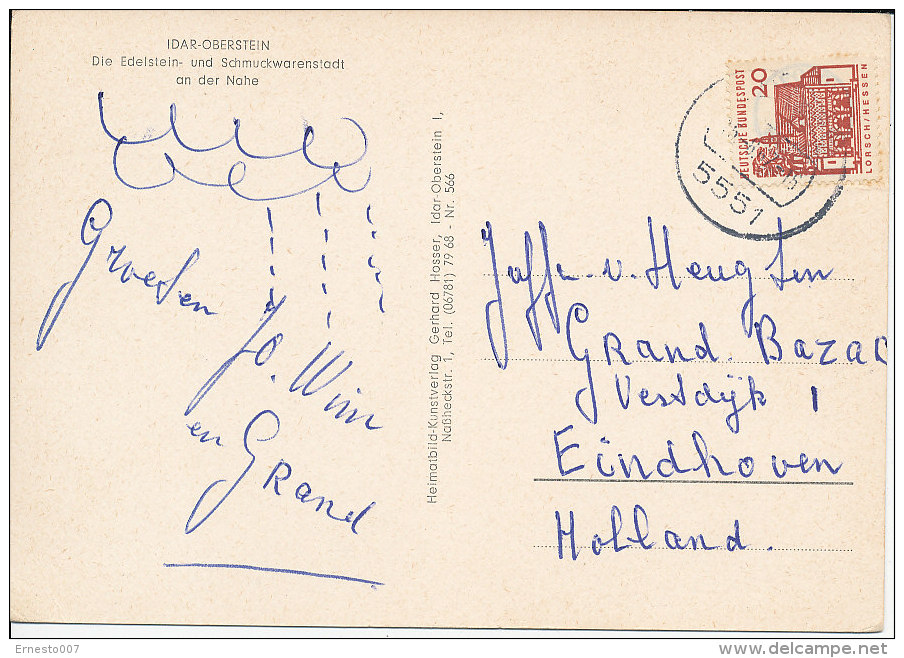 IDAR-OBERSTEIN
Die Edelstein- und Schmuckwarenstadt
an der Nahe
Groeten
Jo. Wim
en Grand
Heimatbild-Kunstverlag Gerhard Hosser, Idar-Oberstein I,
Naßheckstr. 1, Tel. (06781) 79 68 - Nr. 566
DEUTSCHE BUNDESPOST
20
LORSCH/HESSEN
5551
Juffr. v. Heugten
GRAND BAZAR
Vestdijk 1
Eindhoven
Holland.
Ernesto007
delcampe.net